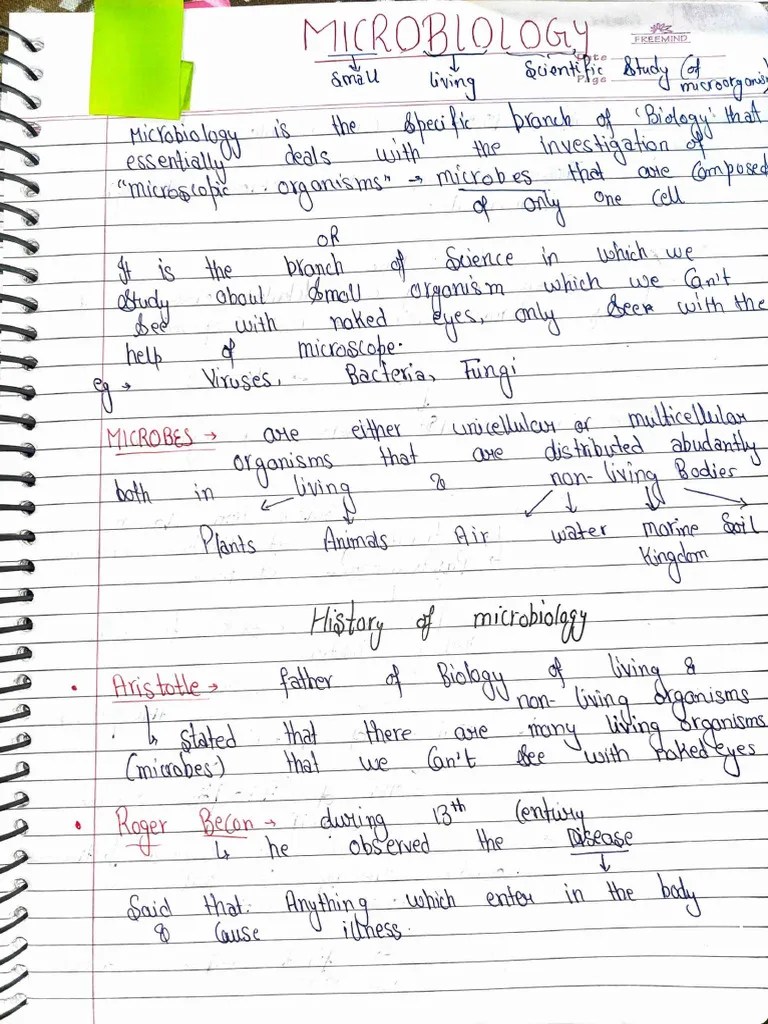 MICROBIOLOGY
FREEMIND
Date
Page
↓ small ↓ living Scientific Study (of microorganism)
Microbiology is the specific branch of 'Biology' that
essentially deals with the investigation of
"microscopic organisms" → microbes that are Composed
of only one cell
OR
It is the branch of Science in which we
study about small organism which we Can't
see with naked eyes, only seen with the
help of microscope.
eg → Viruses, Bacteria, Fungi
MICROBES → are either unicellular or multicellular
organisms that are distributed abudantly
both in living & non-living Bodies
Plants Animals Air water marine Soil
Kingdom
History of microbiology
• Aristotle → father of Biology of living &
non-living organisms
↳ stated that there are many living organisms
(microbes) that we Can't see with naked eyes
• Roger Becon → during 13th Century
↳ he observed the Disease
↓
Said that. Anything which enter in the body
& Cause illness.